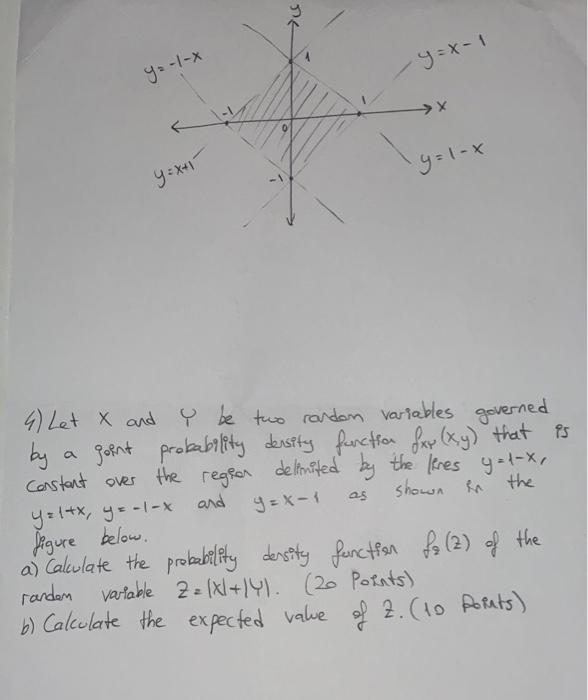 y
y=-1-x
1
y=x-1
-1
1
x
0
y=x+1
-1
y=1-x
4) Let X and Y be two random variables governed
by a joint probability density function fxy(x,y) that is
constant over the region delimited by the lines y=1-x,
y=1+x, y=-1-x and y=x-1 as shown in the
figure below.
a) Calculate the probability density function fz(z) of the
random variable Z=|X|+|Y|. (20 Points)
b) Calculate the expected value of Z. (10 Points)